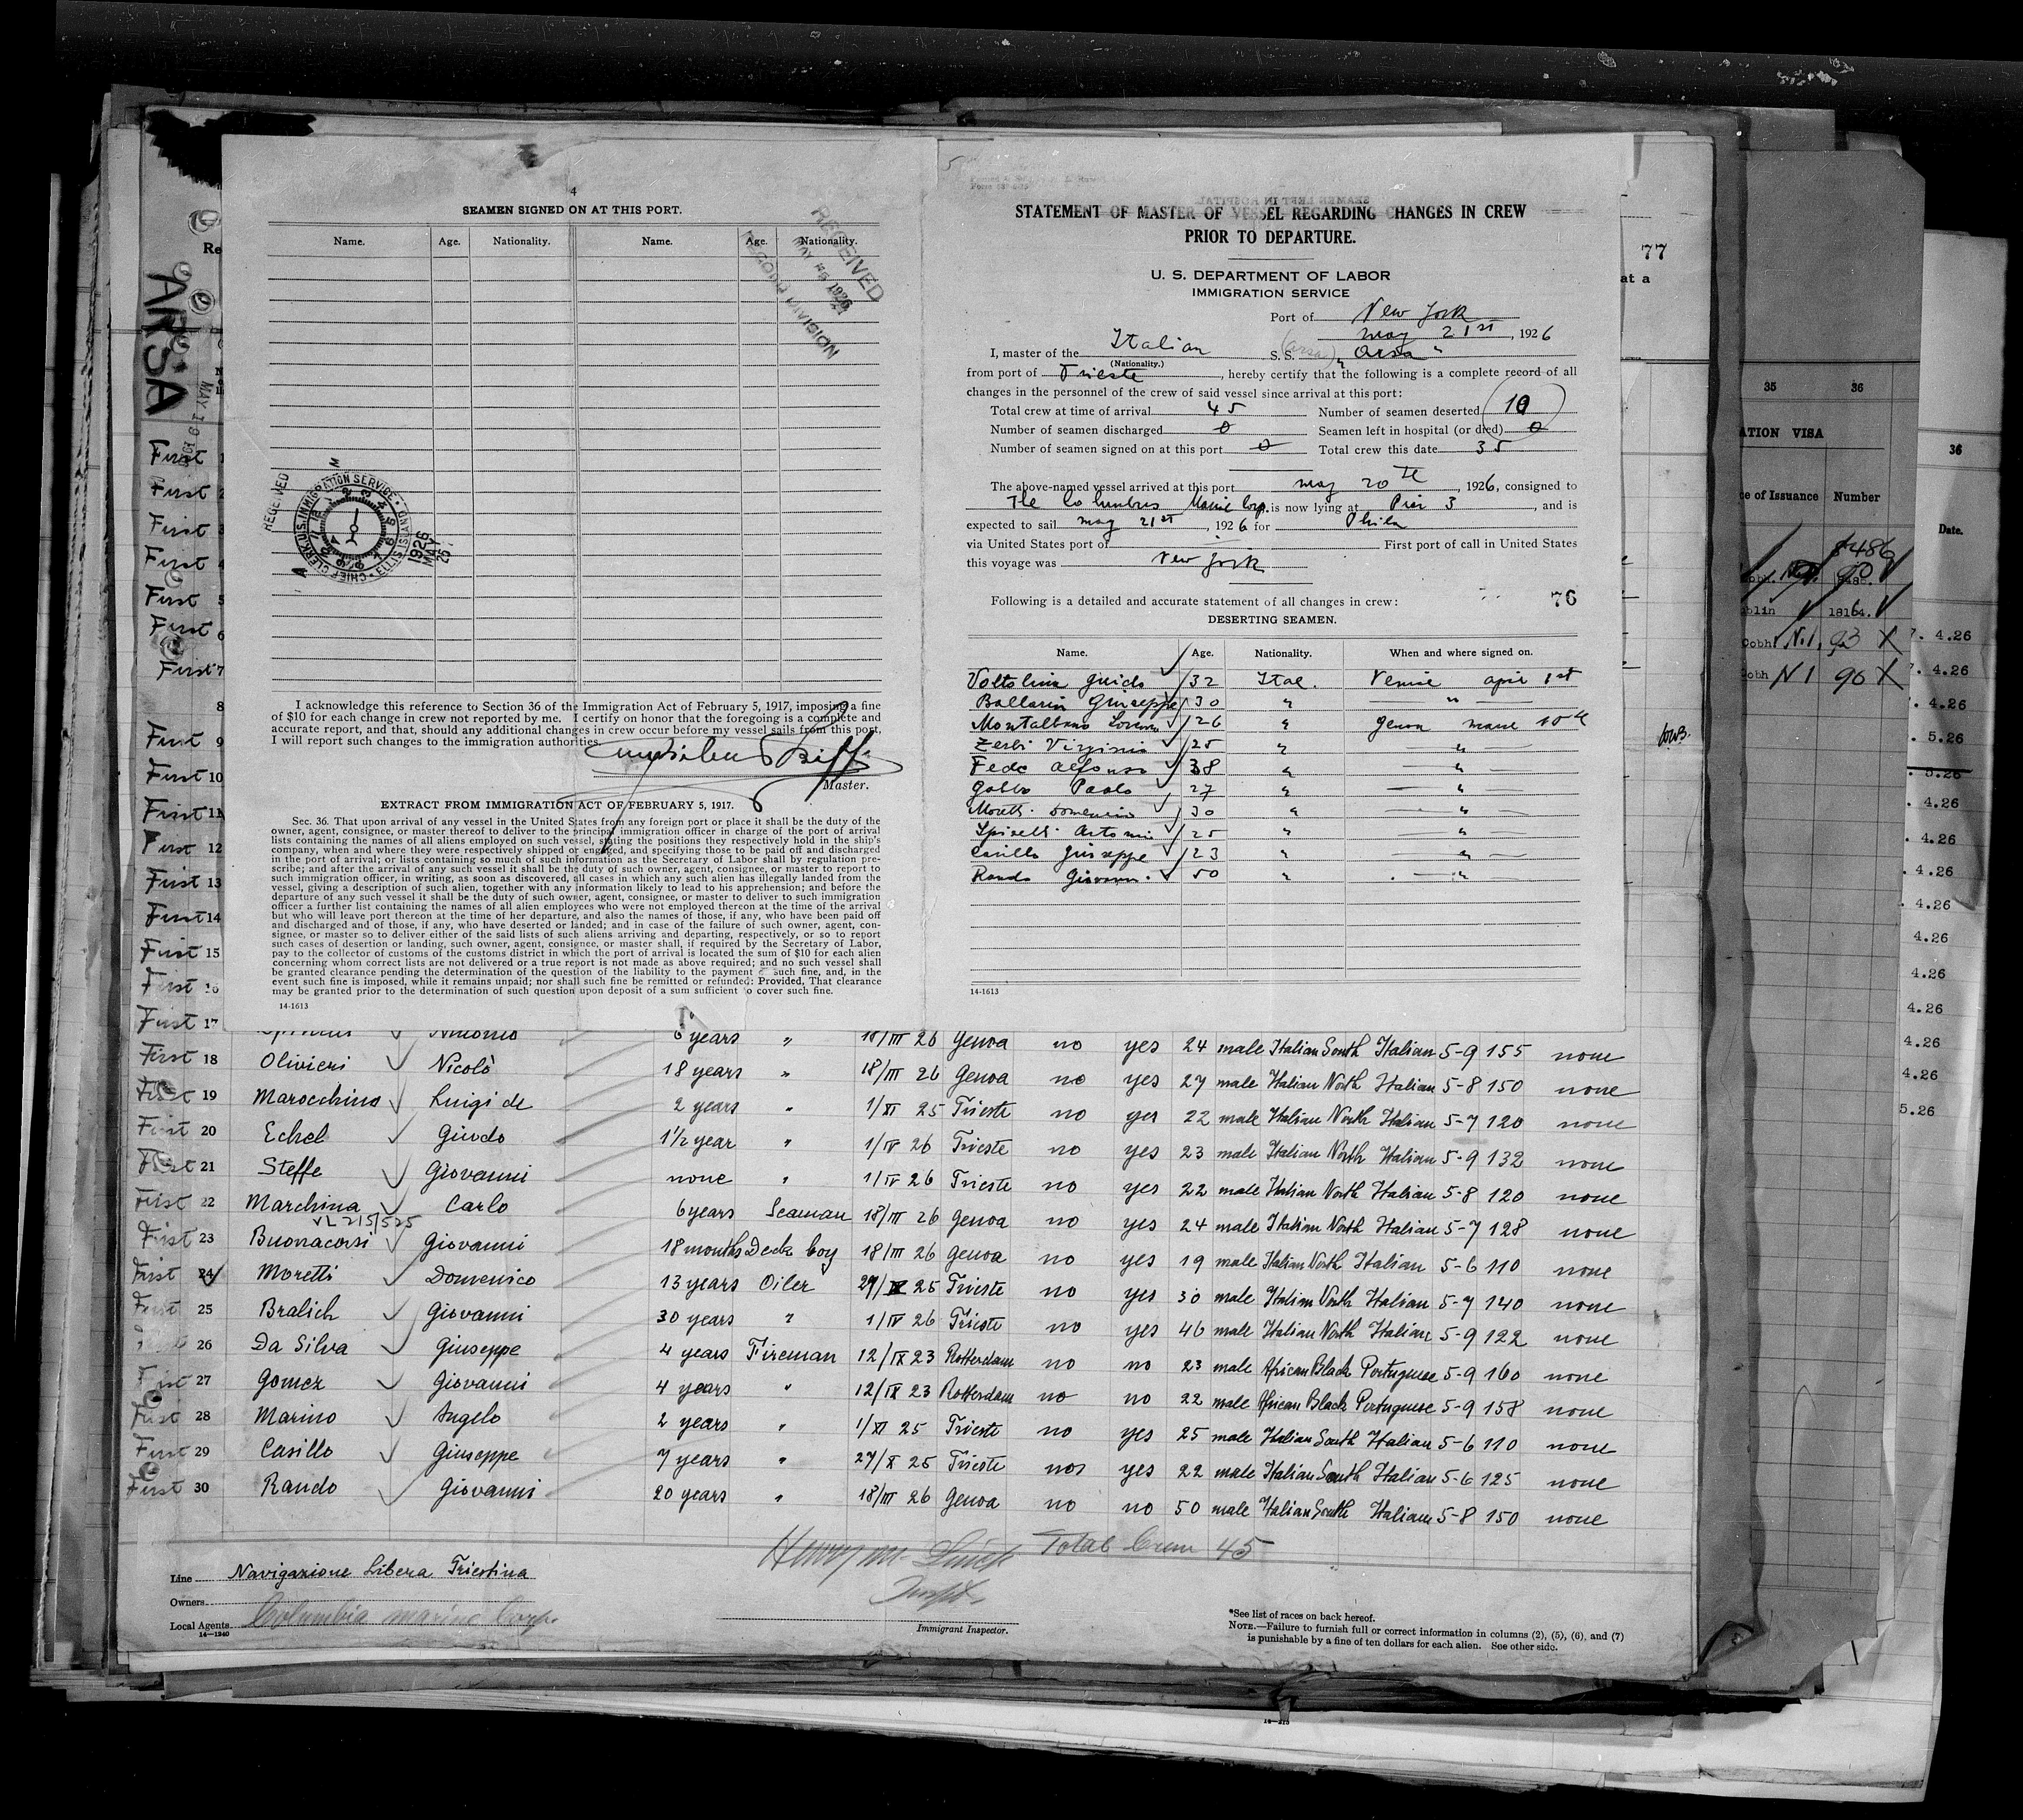 4
SEAMEN SIGNED ON AT THIS PORT.
Name. Age. Nationality. Name. Age. Nationality.
RECEIVED
MAY 1926
RECORD DIVISION
RECEIVED
CHIEF CLERK U.S. IMMIGRATION SERVICE · ELLIS ISLAND
1926 MAY 25
I acknowledge this reference to Section 36 of the Immigration Act of February 5, 1917, imposing a fine
of $10 for each change in crew not reported by me. I certify on honor that the foregoing is a complete and
accurate report, and that, should any additional changes in crew occur before my vessel sails from this port,
I will report such changes to the immigration authorities.
Master.
EXTRACT FROM IMMIGRATION ACT OF FEBRUARY 5, 1917.
Sec. 36. That upon arrival of any vessel in the United States from any foreign port or place it shall be the duty of the
owner, agent, consignee, or master thereof to deliver to the principal immigration officer in charge of the port of arrival
lists containing the names of all aliens employed on such vessel, stating the positions they respectively hold in the ship's
company, when and where they were respectively shipped or engaged, and specifying those to be paid off and discharged
in the port of arrival; or lists containing so much of such information as the Secretary of Labor shall by regulation pre-
scribe; and after the arrival of any such vessel it shall be the duty of such owner, agent, consignee, or master to report to
such immigration officer, in writing, as soon as discovered, all cases in which any such alien has illegally landed from the
vessel, giving a description of such alien, together with any information likely to lead to his apprehension; and before the
departure of any such vessel it shall be the duty of such owner, agent, consignee, or master to deliver to such immigration
officer a further list containing the names of all alien employees who were not employed thereon at the time of the arrival
but who will leave port thereon at the time of her departure, and also the names of those, if any, who have been paid off
and discharged and of those, if any, who have deserted or landed; and in case of the failure of such owner, agent, con-
signee, or master so to deliver either of the said lists of such aliens arriving and departing, respectively, or so to report
such cases of desertion or landing, such owner, agent, consignee, or master shall, if required by the Secretary of Labor,
pay to the collector of customs of the customs district in which the port of arrival is located the sum of $10 for each alien
concerning whom correct lists are not delivered or a true report is not made as above required; and no such vessel shall
be granted clearance pending the determination of the question of the liability to the payment of such fine, and, in the
event such fine is imposed, while it remains unpaid; nor shall such fine be remitted or refunded: Provided, That clearance
may be granted prior to the determination of such question upon deposit of a sum sufficient to cover such fine.
14-1613
5
STATEMENT OF MASTER OF VESSEL REGARDING CHANGES IN CREW
PRIOR TO DEPARTURE.
U. S. DEPARTMENT OF LABOR
IMMIGRATION SERVICE
Port of New York
May 21st, 1926
I, master of the Italian S.S. (Arsa) "Arsa"
(Nationality.)
from port of Trieste, hereby certify that the following is a complete record of all
changes in the personnel of the crew of said vessel since arrival at this port:
Total crew at time of arrival 45 Number of seamen deserted 10
Number of seamen discharged 0 Seamen left in hospital (or died) 0
Number of seamen signed on at this port 0 Total crew this date 35
The above-named vessel arrived at this port May 20th, 1926, consigned to
The Columbus Marine Corp. is now lying at Pier 3, and is
expected to sail May 21st, 1926 for Phila
via United States port of First port of call in United States
this voyage was New York
Following is a detailed and accurate statement of all changes in crew: 76
DESERTING SEAMEN.
Name. Age. Nationality. When and where signed on.
Voltolina Guido 32 Ital. Venice April 1st
Ballarin Giuseppe 30 " "
Montalbano Lorenzo 26 " Genoa 18th
Zerbi Virginio 25 " "
Fede Alfonso 38 " "
Gobbo Paolo 27 " "
Moretti Domenico 30 " "
Spinelli Antonio 25 " "
Casillo Giuseppe 23 " "
Rando Giovanni 50 " "
14-1613
77
at a
ARSA
Re
First 1
First 2
First 3
First 4
First 5
First 6
First 7
8
First 9
First 10
First 11
First 12
First 13
First 14
First 15
First 16
First 17 Antonio 6 years " 18/III 26 Genoa no yes 24 male Italian South Italian 5-9 155 none
First 18 Olivieri Nicolò 18 years " 18/III 26 Genoa no yes 27 male Italian North Italian 5-8 150 none
First 19 Marocchino Luigi de 2 years " 1/XI 25 Trieste no yes 22 male Italian North Italian 5-7 120 none
First 20 Echel Giudo 1½ year " 1/IV 26 Trieste no yes 23 male Italian North Italian 5-9 132 none
First 21 Steffe Giovanni none " 1/IV 26 Trieste no yes 22 male Italian North Italian 5-8 120 none
First 22 Marchina Carlo 6 years Seaman 18/III 26 Genoa no yes 24 male Italian North Italian 5-7 128 none
First 23 Buonacorsi Giovanni 18 months Deck boy 18/III 26 Genoa no yes 19 male Italian North Italian 5-6 110 none
First 24 Moretti Domenico 13 years Oiler 27/X 25 Trieste no yes 30 male Italian North Italian 5-7 140 none
First 25 Bralich Giovanni 30 years " 1/IV 26 Trieste no yes 46 male Italian North Italian 5-9 122 none
First 26 Da Silva Giuseppe 4 years Fireman 12/IX 23 Rotterdam no no 23 male African Black Portuguese 5-9 160 none
First 27 Gomez Giovanni 4 years " 12/IX 23 Rotterdam no no 22 male African Black Portuguese 5-9 158 none
First 28 Marino Angelo 2 years " 1/XI 25 Trieste no yes 25 male Italian South Italian 5-6 110 none
First 29 Casillo Giuseppe 7 years " 27/X 25 Trieste no yes 22 male Italian South Italian 5-6 125 none
First 30 Rando Giovanni 20 years " 18/III 26 Genoa no no 50 male Italian South Italian 5-8 150 none
Total Crew 45
Line Navigazione Libera Triestina
Owners
Local Agents Columbia Marine Corp.
14—1240
Immigrant Inspector.
*See list of races on back hereof.
NOTE.—Failure to furnish full or correct information in columns (2), (5), (6), and (7)
is punishable by a fine of ten dollars for each alien. See other side.
35 36
ATION VISA
ce of Issuance Number
Cobh
blin 18164.
Cobh N.I. 93 X
Cobh N I 96 X
36
Date.
7. 4.26
7. 4.26
. 4.26
. 5.26
. 5.26
. 4.26
. 4.26
. 4.26
. 4.26
4.26
4.26
4.26
4.26
4.26
5.26